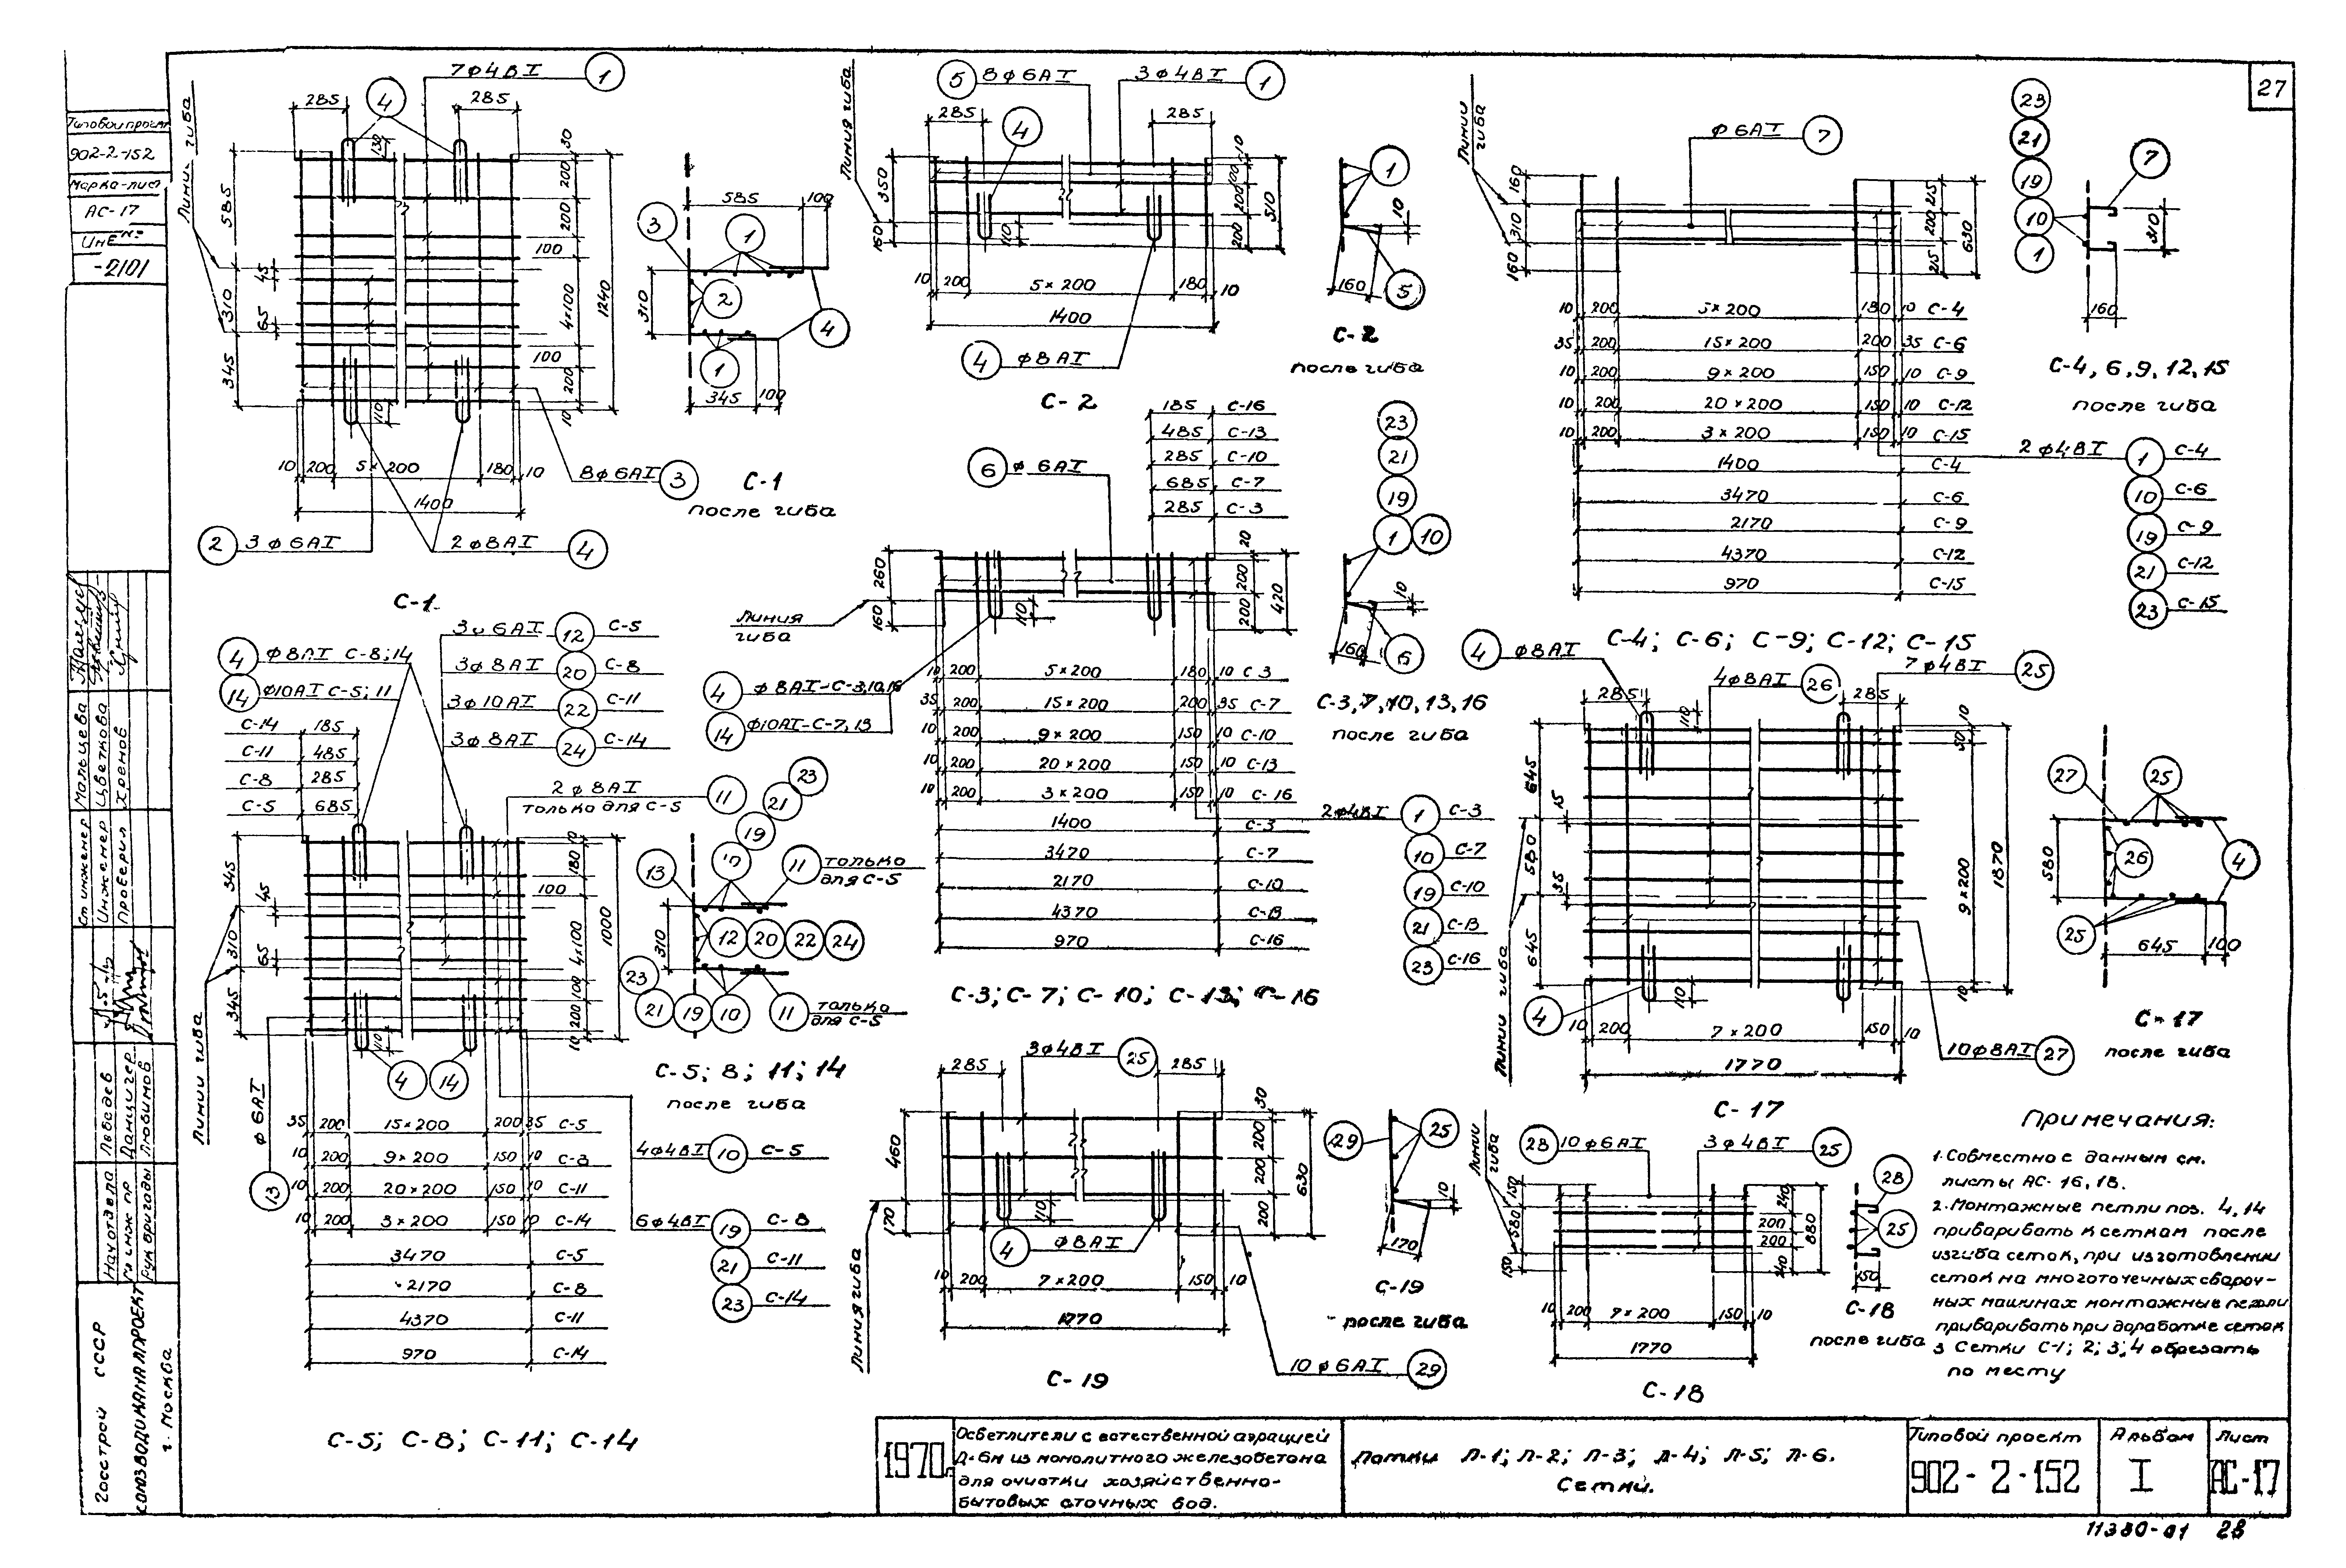 27
Типовой проект
902-2-152
Марка-лист
АС-17
Инв №
-2101
7ф4ВI 1
285 4 285
Линии гиба
585 45 310 65 345
130 110
30 200 200 100 4×100 100 200 10 1240
10 200 5×200 180 10
1400
8ф6АI 3
2 3ф6АI
2ф8АI 4
С-1
585 100
3 1 2 4 1
310
345 100
С-1
после гиба
5 8ф6АI 3ф4ВI 1
285 4 285
Линия гиба
350 160 110
10 100 200 200 510
10 200 5×200 180 10
1400
4 ф8АI
С-2
1 10 160 5
С-2
после гиба
Линии гиба
ф6АI 7
160 310 160
215 200 215 630
10 200 5×200 180 10 С-4
35 200 15×200 200 35 С-6
10 200 9×200 150 10 С-9
10 200 20×200 150 10 С-12
10 200 3×200 150 10 С-15
1400 С-4
3470 С-6
2170 С-9
4370 С-12
970 С-15
2ф4ВI 1 С-4
10 С-6
19 С-9
21 С-12
23 С-15
С-4; С-6; С-9; С-12; С-15
23 21 19 10 1 7
310 160
С-4, 6, 9, 12, 15
после гиба
185 С-16
485 С-13
285 С-10
685 С-7
285 С-3
6 ф6АI
Линия гиба
260 160 110
20 200 200 420
4 ф8АI-С-3,10,16
14 ф10АI-С-7,13
10 200 5×200 180 10 С-3
35 200 15×200 200 35 С-7
10 200 9×200 150 10 С-10
10 200 20×200 150 10 С-13
10 200 3×200 150 10 С-16
1400 С-3
3470 С-7
2170 С-10
4370 С-13
970 С-16
2ф4ВI 1 С-3
10 С-7
19 С-10
21 С-13
23 С-16
С-3; С-7; С-10; С-13; С-16
23 21 19 1 10
10 160 6
С-3, 7, 10, 13, 16
после гиба
4 ф8АI С-8;14
14 ф10АI С-5; 11
С-14 185
С-11 485
С-8 285
С-5 685
3ф6АI 12 С-5
3ф8АI 20 С-8
3ф10АI 22 С-11
3ф8АI 24 С-14
2ф8АI 11
только для С-5
345 45 310 65 345
Линии гиба
180 100 4×100 100 200 10 1000
110 4 14
ф6АI 13
35 200 15×200 200 35 С-5
10 200 9×200 150 10 С-8
10 200 20×200 150 10 С-11
10 200 3×200 150 10 С-14
3470 С-5
2170 С-8
4370 С-11
970 С-14
4ф4ВI 10 С-5
6ф4ВI 19 С-8
21 С-11
23 С-14
С-5; С-8; С-11; С-14
23 21 19 10 13
11 только для С-5
310 12 20 22 24
23 21 19 10
11 только для С-5
С-5; 8; 11; 14
после гиба
4 ф8АI
4ф8АI 26
7ф4ВI 25
285 110 285
645 15 580 35 645
Линии гиба
10 50 9×200 10 1870
4 110
10 200 7×200 150 10
1770
10ф8АI 27
С-17
27 25 26 4 25
580 645 100
С-17
после гиба
3ф4ВI 25
285 285
460 170
Линия гиба
30 200 200 200 630
110 4 ф8АI
10 200 7×200 150 10
1770
10ф6АI 29
С-19
29 25 10 170
С-19
после гиба
Линии гиба
28 10ф6АI 3ф4ВI 25
150 580 150
240 200 200 240 880
10 200 7×200 150 10
1770
С-18
28 25 150
С-18
после гиба
Примечания:
1. Совместно с данным см.
листы АС-16, 18.
2. Монтажные петли поз. 4, 14
приваривать к сеткам после
изгиба сеток, при изготовлении
сеток на многоточечных свароч-
ных машинах монтажные петли
приваривать при доработке сеток
3 Сетки С-1; 2; 3; 4 обрезать
по месту
Ст инженер Мальцева
Инженер Цветкова
Проверил Хренов
Нач отдела Лебедев
Гл инж пр Данцигер
Рук бригады Любимов
Госстрой СССР
СОЮЗВОДОКАНАЛПРОЕКТ
г. Москва
1970г.
Осветлители с естественной аэрацией
Д-6м из монолитного железобетона
для очистки хозяйственно-
бытовых сточных вод.
Лотки Л-1; Л-2; Л-3; Л-4; Л-5; Л-6.
Сетки.
Типовой проект
902-2-152
Альбом
I
Лист
АС-17
11380-01 28